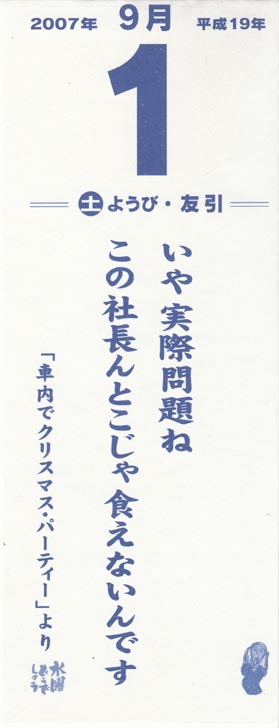 2007年 9月 平成19年
1
土 ようび・友引
いや実際問題ね
この社長んとこじゃ食えないんです
「車内でクリスマス・パーティー」より
水曜
どうで
しょう